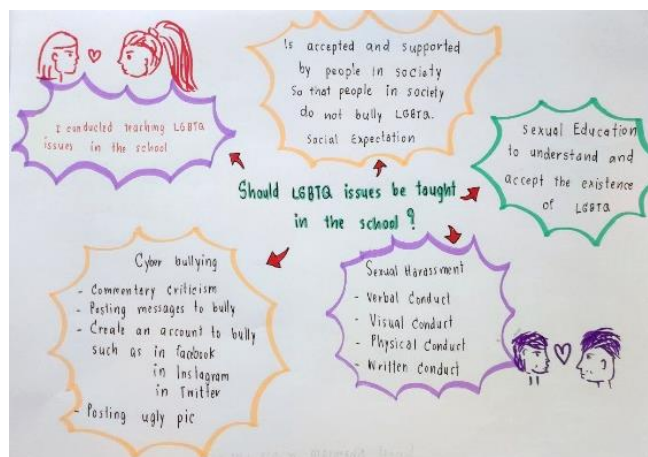 Should LGBTQ issues be taught
in the school?
I conducted teaching LGBTQ
issues in the school
Is accepted and supported
by people in society
So that people in society
do not bully LGBTQ.
Social Expectation
Sexual Education
to understand and
accept the existence
of LGBTQ
Cyber bullying
- Commentary criticism
- Posting messages to bully
- Create an account to bully
such as in facebook
in Instagram
in Twitter
- Posting ugly pic
Sexual Harassment
- Verbal Conduct
- Visual Conduct
- Physical Conduct
- Written Conduct